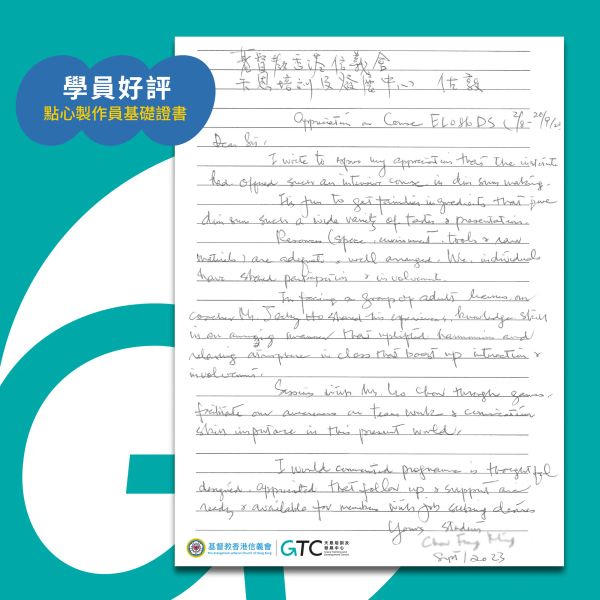 學員好評
點心製作員基礎證書
基督教香港信義會
天恩培訓及發展中心
Appreciation on Course EL080DS
Dear Sir,
I wrote to my appreciation that the institute
had offered such an course in dim sum making.
It's fun to get ingredients that give
dim sum such a wide variety of taste & presentation.
Resources (space, environment, tools & raw
materials) are adequate & well arranged. We, individuals
have shared participation & involvement.
In facing a group of adult learners, our
Mr. Jacky Ho shared his experience, knowledge skill
in an amazing manner that uplifted and
relaxing atmosphere in class that boost up interaction &
involvement.
Sessions with Mr. Leo Chow through games,
facilitate our awareness on team work & communication
skill in this present world.
I would programme is thoughtful
designed, appreciated that follow up & support are
ready & available for members with job seeking desires
Yours student
Chow Fung Ming
Sept/2023
基督教香港信義會
The Evangelical Lutheran Church of Hong Kong
GTC
天恩培訓及
發展中心
Grace Training and
Development Centre